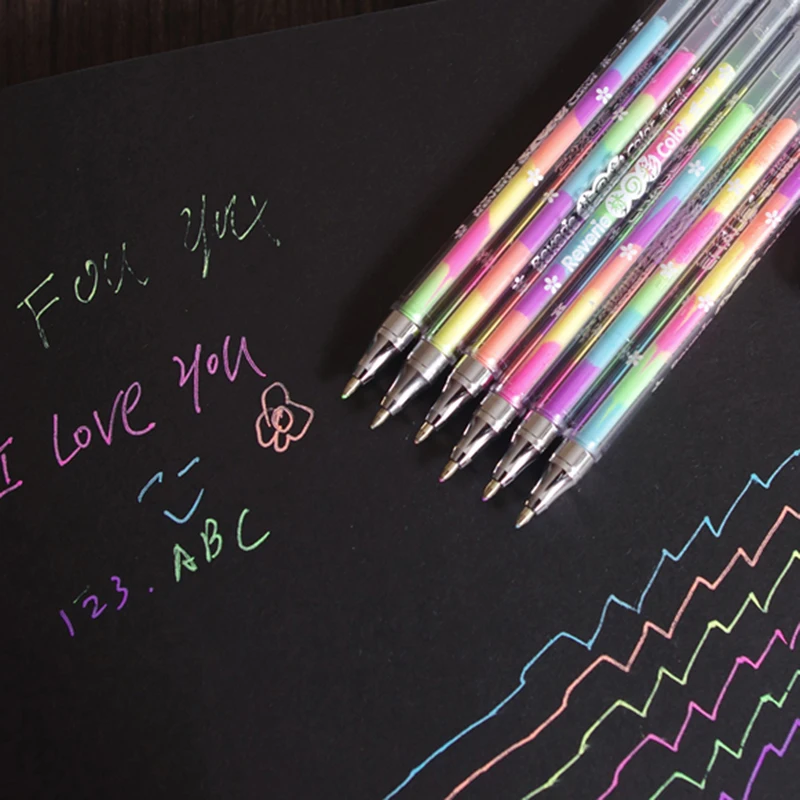 For you
I Love you
123. ABC
Reverie color